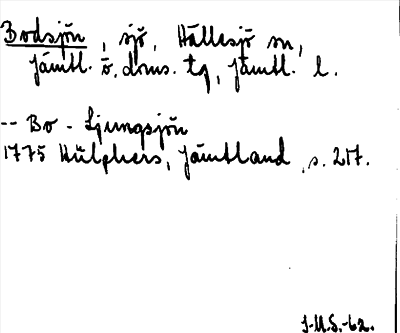 Bodsjön, sjö, Hällesjö sn,
Jämtl. ö. doms. tg, Jämtl. l.
-- Bo - Ljungsjön
1775 Hülphers, Jämtland, s. 217.
J.M.S.-62.